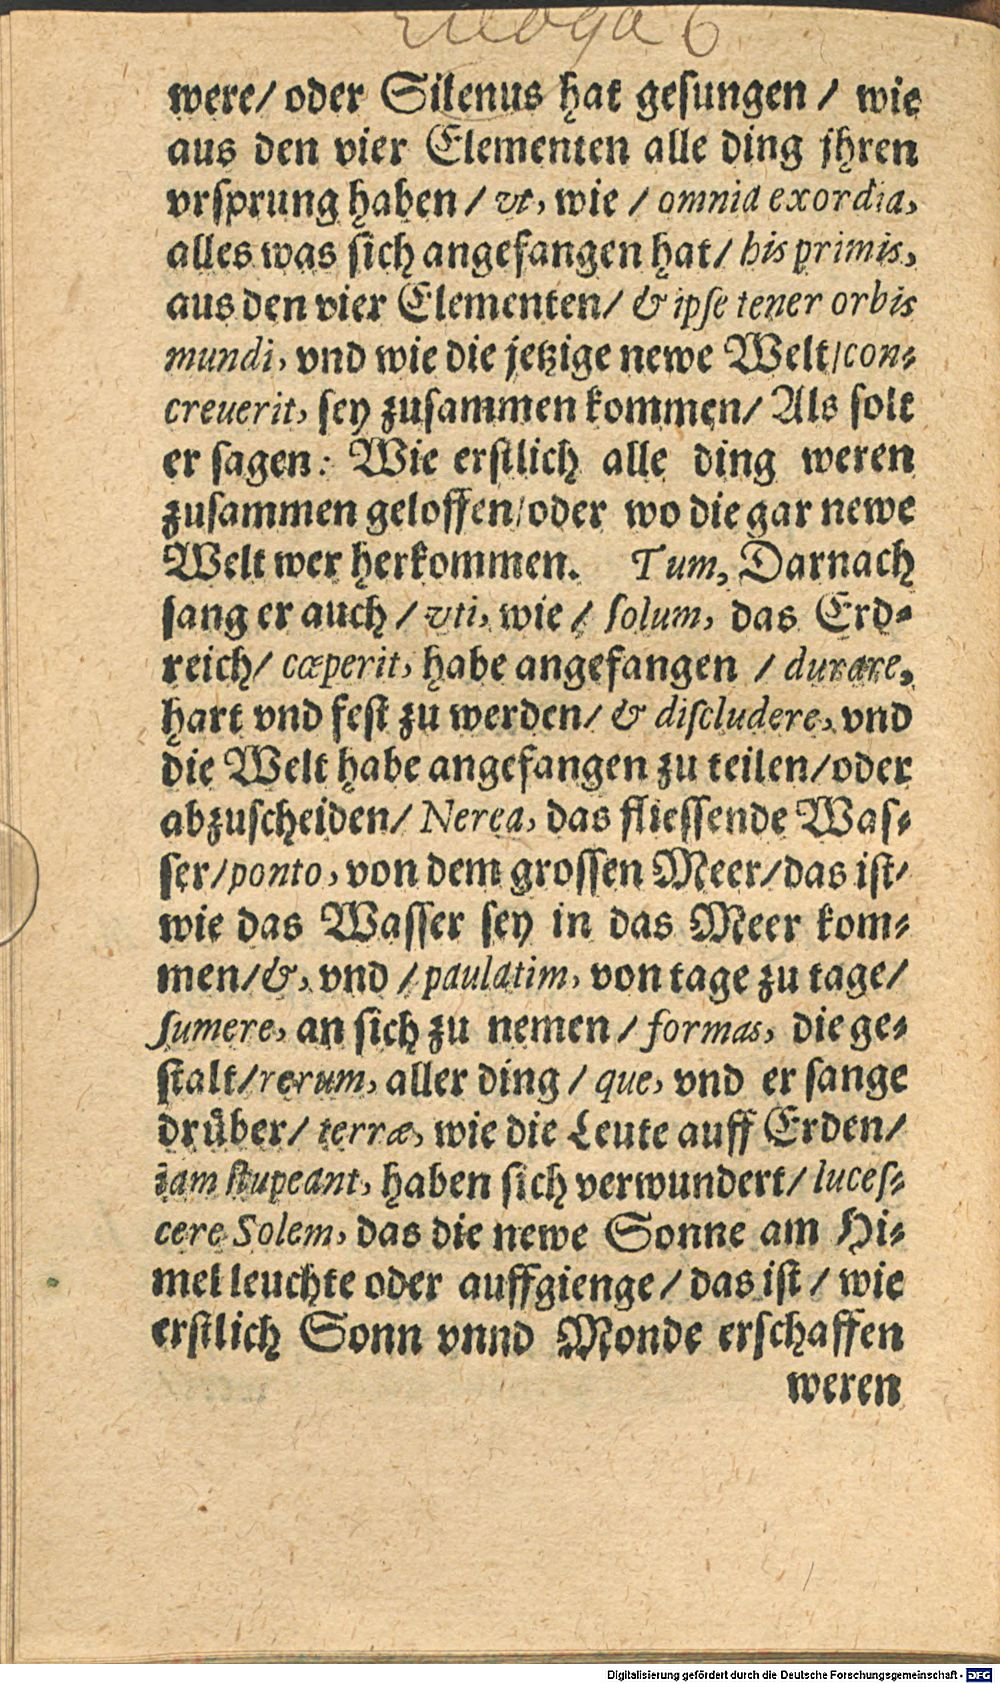 Ekloga 6
were/ oder Silenus hat gesungen / wie
aus den vier Elementen alle ding jhren
vrsprung haben / vt, wie / omnia exordia,
alles was sich angefangen hat/ his primis,
aus den vier Elementen/ & ipſe tener orbis
mundi, vnd wie die jetzige newe Welt/con-
creuerit, sey zusammen kommen/ Als solt
er sagen: Wie erstlich alle ding weren
zusammen geloffen/oder wo die gar newe
Welt wer herkommen. Tum, Darnach
sang er auch / vti, wie / ſolum, das Erd-
reich/ cœperit, habe angefangen / durare,
hart vnd fest zu werden/ & diſcludere, vnd
die Welt habe angefangen zu teilen/oder
abzuscheiden/ Nerea, das fliessende Was-
ser/ponto, von dem grossen Meer/das ist/
wie das Wasser sey in das Meer kom-
men/&, vnd / paulatim, von tage zu tage/
ſumere, an sich zu nemen / formas, die ge-
stalt/rerum, aller ding / que, vnd er sange
drüber/ terræ, wie die Leute auff Erden/
iam ſtupeant, haben sich verwundert/ luceſ-
cere Solem, das die newe Sonne am Hi-
mel leuchte oder auffgienge / das ist / wie
erstlich Sonn vnnd Monde erschaffen
weren
Digitalisierung gefördert durch die Deutsche Forschungsgemeinschaft - DFG